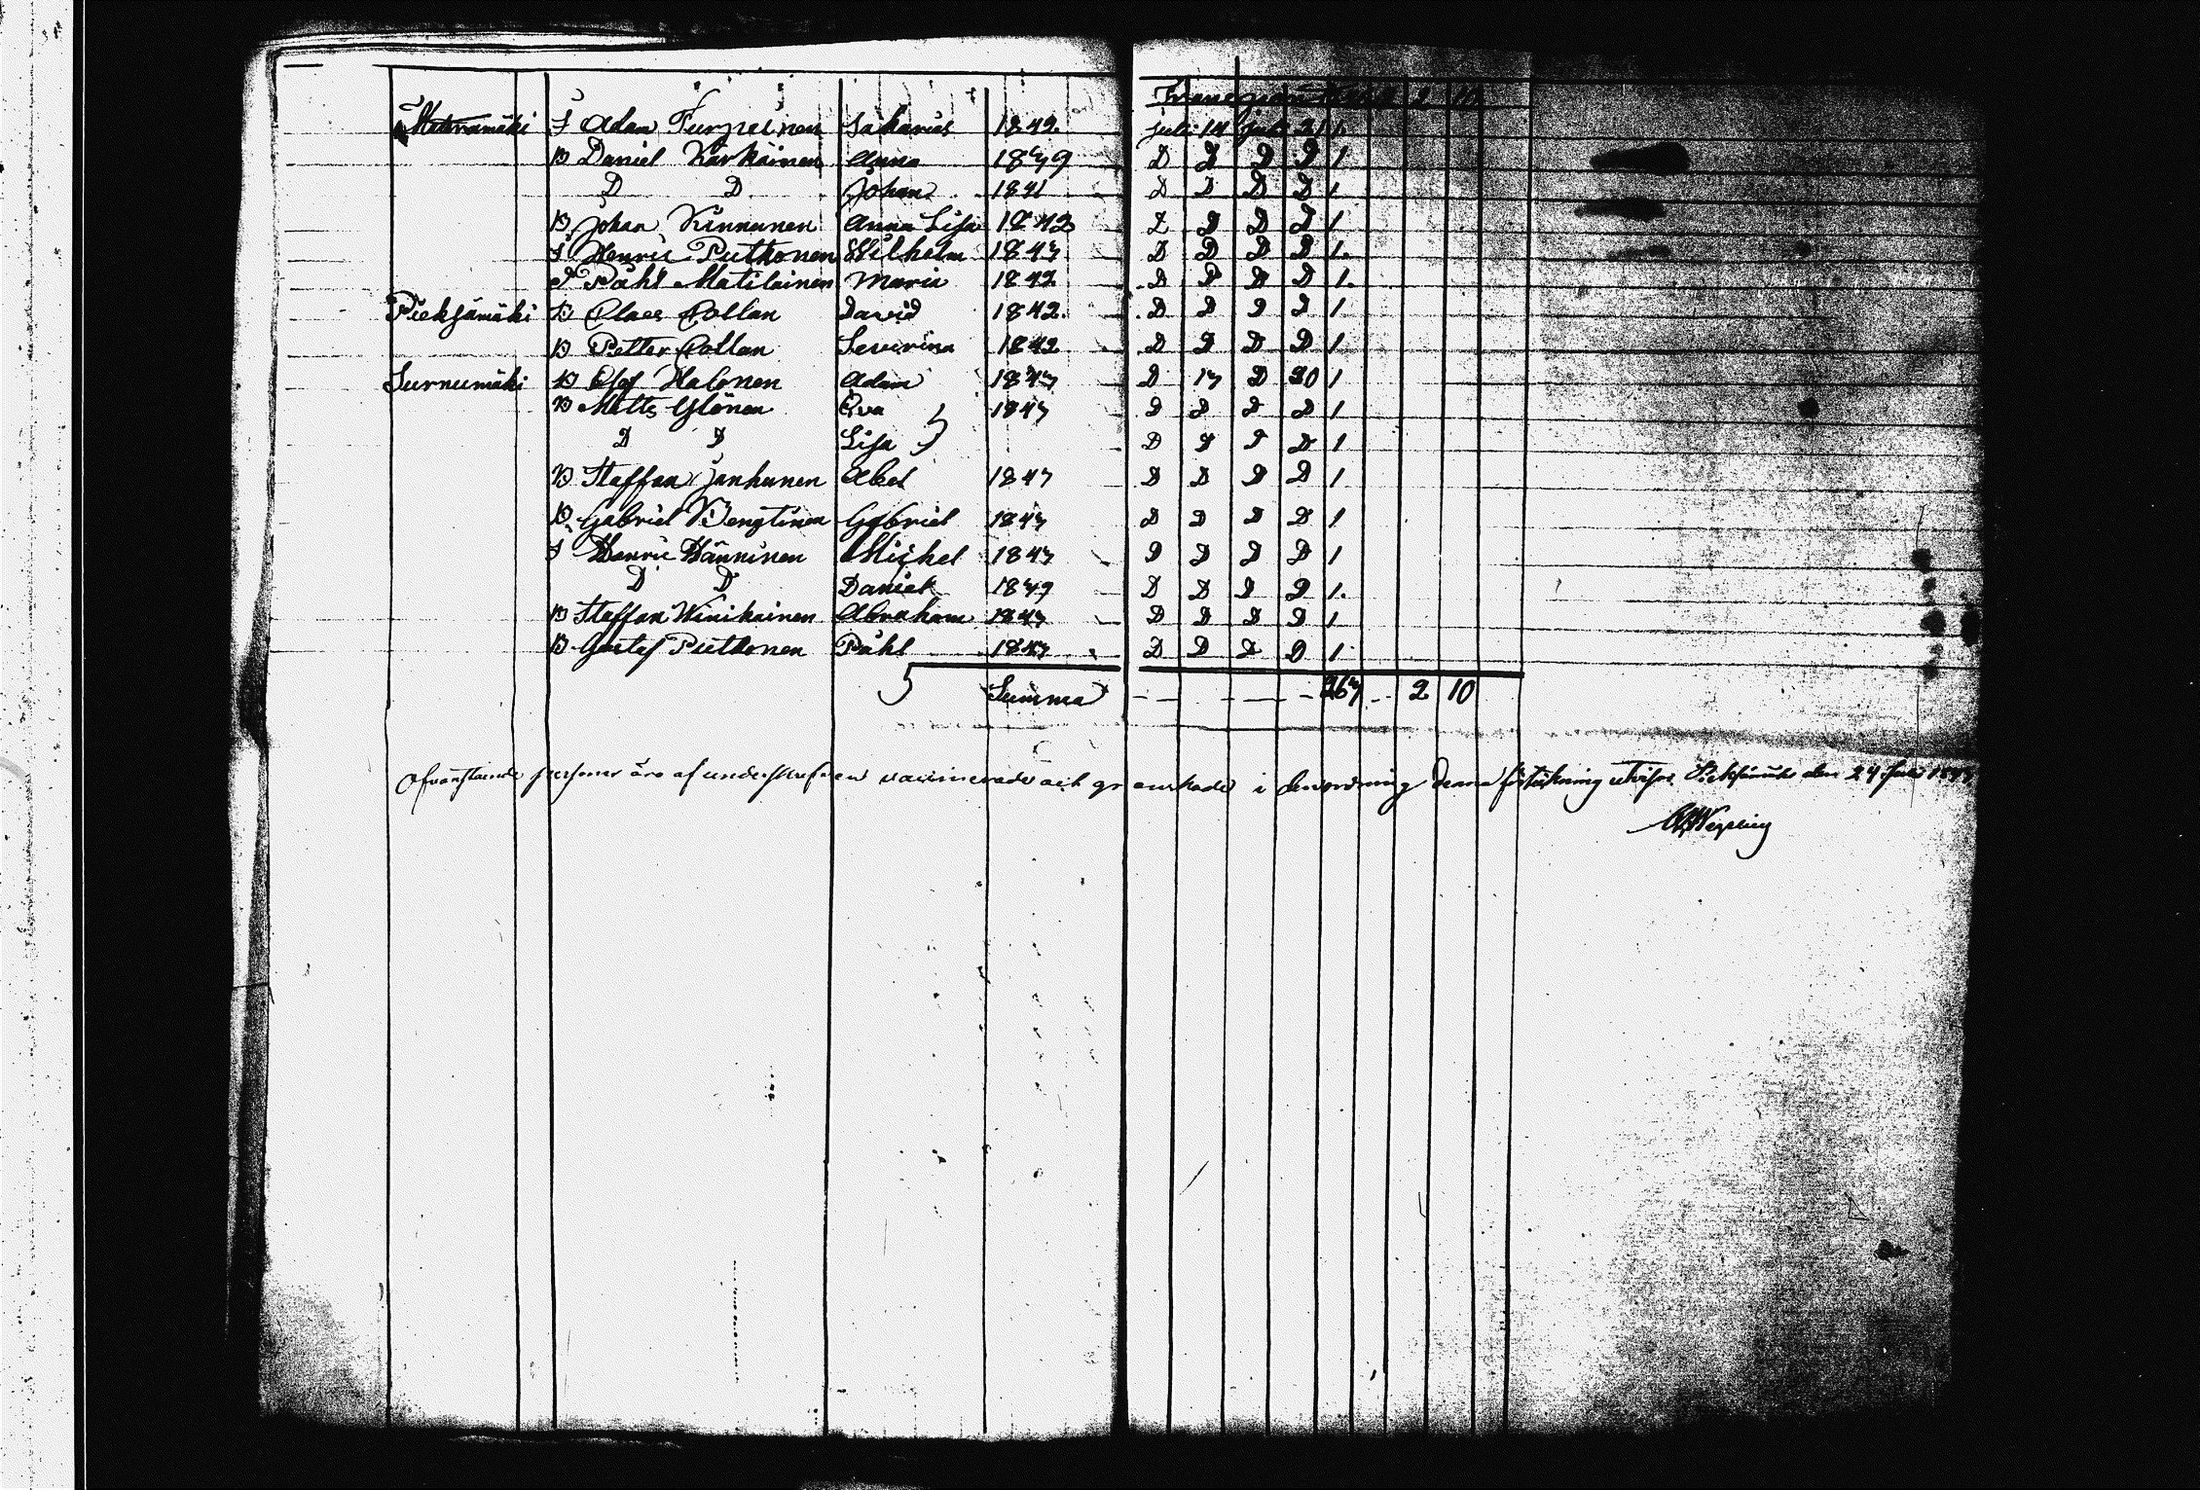 Transport 250 2 10
Materamäki I Adam Turpeinen Sakarias 1842. juli 14 juli 21 1.
B Daniel Karkäinen Anna 1839 D D D D 1
D D Johan 1841 D D D D 1.
B Johan Kinnunen Anna Lisa 1842 D D D D 1
I Henric Puttonen Wilhelm 1843 D D D D 1.
I Påhl Matilainen Maria 1842 D D D D 1.
Pieksämäki B Claes Collan David 1842. D D D D 1
B Petter Collan Severina 1842 D D D D 1
Surnumäki B Olof Halonen Adam 1843 D 13 D 20 1
B Matts Ylönen Eva 1843 D D D D 1
D D Lisa D D D D 1
B Staffan Janhunen Abel 1843 D D D D 1
B Gabriel Bengtinen Gabriel 1843 D D D D 1
I Henric Hänninen Michel 1843 D D D D 1
D D Daniel 1839 D D D D 1.
B Staffan Winikainen Abraham 1843 D D D D 1
B Gustef Puttonen Påhl 1843 D D D D 1
Summa 267 2 10
Ofvanstående personer äro af undertecknad vaccinerade och granskade i den ordning denna förtekning utvisar. Pieksämäki den 24 Juli 1843